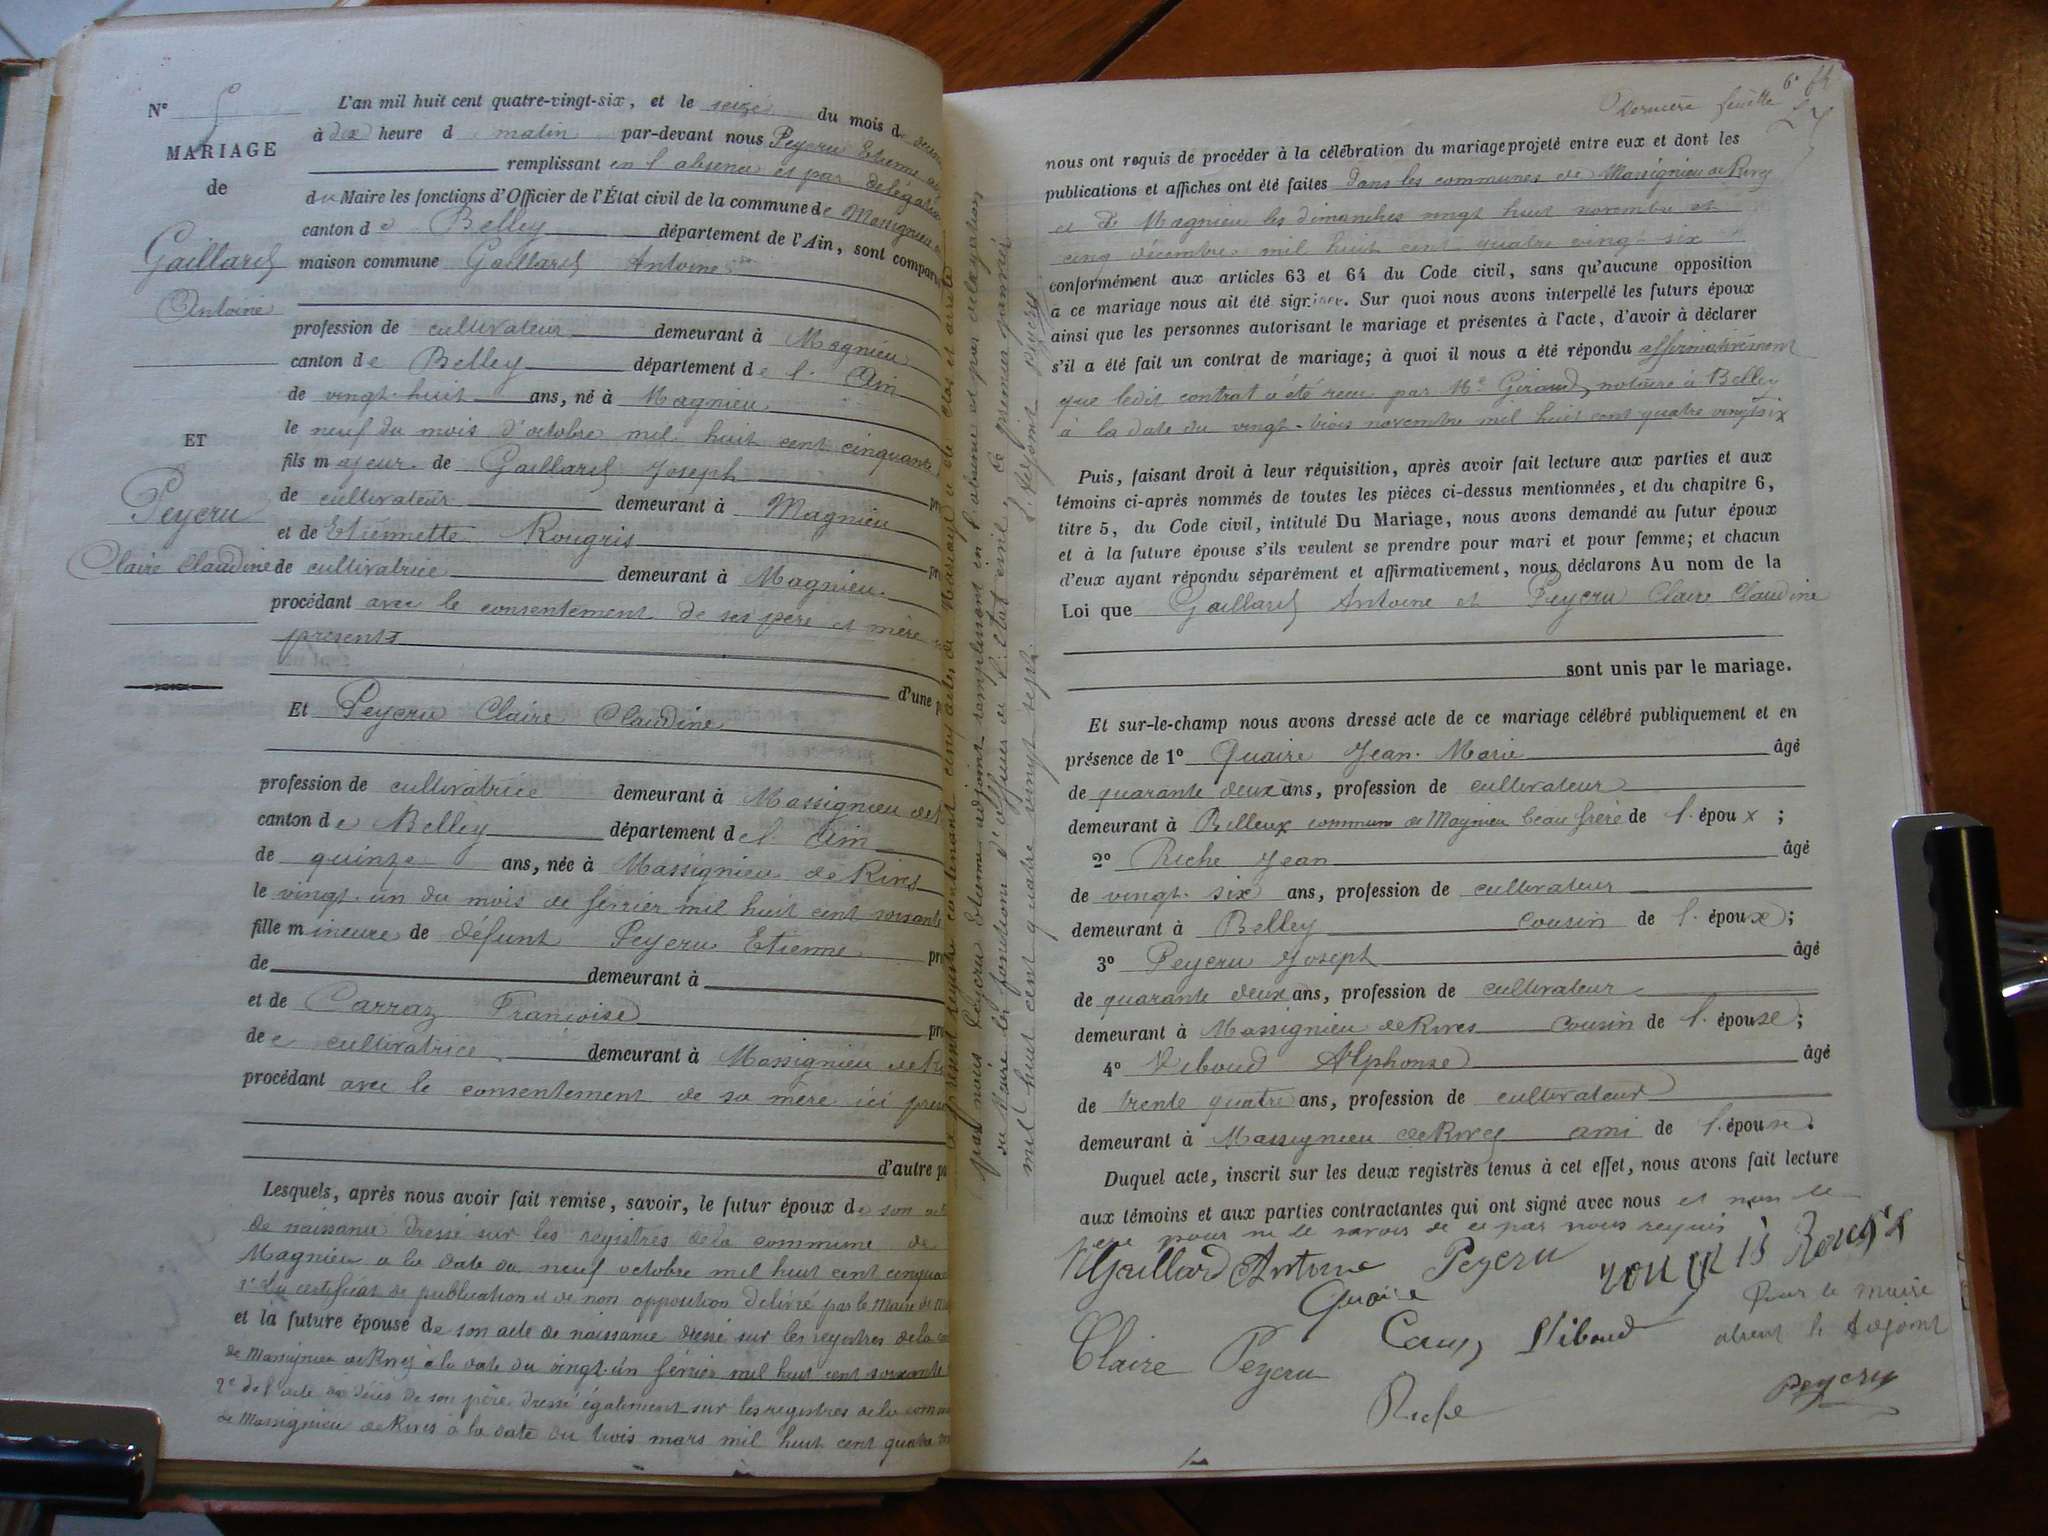 N° 5
MARIAGE
de
Gaillard
Antoine
ET
Peycru
Claire Claudine
L'an mil huit cent quatre-vingt-six, et le seize du mois de
à dix heure d matin par-devant nous Peycru Etienne
remplissant en l'absence et par délégation
du Maire les fonctions d'Officier de l'État civil de la commune de Massignieu
canton de Belley département de l'Ain, sont comparu
maison commune Gaillard Antoine
profession de cultivateur demeurant à Magnieu
canton de Belley département de l'Ain
de vingt-huit ans, né à Magnieu
le neuf du mois d'octobre mil huit cent cinquante
fils majeur de Gaillard Joseph
de cultivateur demeurant à Magnieu
et de Etiennette Rougris
de cultivatrice demeurant à Magnieu
procédant avec le consentement de ses père et mère
présents
d'une p
Et Peycru Claire Claudine
profession de cultivatrice demeurant à Massignieu de
canton de Belley département de l'Ain
de quinze ans, née à Massignieu de Rives
le vingt-un du mois de février mil huit cent soixante
fille mineure de défunt Peycru Etienne pr
de demeurant à
et de Carraz Françoise pr
de cultivatrice demeurant à Massignieu de R
procédant avec le consentement de sa mère ici prés
d'autre p
Lesquels, après nous avoir fait remise, savoir, le futur époux de son
de naissance dressé sur les registres de la commune de
Magnieu a la date du neuf octobre mil huit cent cinqua
1° du certificat de publication et de non opposition délivré par le Maire de
et la future épouse de son acte de naissance dressé sur les registres de la
de Massignieu de Rives à la date du vingt-un février mil huit cent soixante
2° de l'acte de décès de son père dressé également sur les registres de la comm
de Massignieu de Rives à la date du trois mars mil huit cent quatre
le présent registre contenant cinq actes de Mariage a été clos et arrêté
par nous Peycru Etienne adjoint remplissant en l'absence et par délégation
du Maire les fonctions d'officier de l'état civil, ce premier janvier
mil huit cent quatre vingt sept. L'Adjoint Peycru
Dernière feuille
nous ont requis de procéder à la célébration du mariage projeté entre eux et dont les
publications et affiches ont été faites dans les communes de Massignieu de Rives
et de Magnieu les dimanches vingt huit novembre et
cinq décembre mil huit cent quatre vingt six
conformément aux articles 63 et 64 du Code civil, sans qu'aucune opposition
a ce mariage nous ait été signifiée. Sur quoi nous avons interpellé les futurs époux
ainsi que les personnes autorisant le mariage et présentes à l'acte, d'avoir à déclarer
s'il a été fait un contrat de mariage; à quoi il nous a été répondu affirmativement
que ledit contrat a été recu par Me Giraud, notaire à Belley
à la date du vingt-trois novembre mil huit cent quatre vingt six
Puis, faisant droit à leur réquisition, après avoir fait lecture aux parties et aux
témoins ci-après nommés de toutes les pièces ci-dessus mentionnées, et du chapitre 6,
titre 5, du Code civil, intitulé Du Mariage, nous avons demandé au futur époux
et à la future épouse s'ils veulent se prendre pour mari et pour femme; et chacun
d'eux ayant répondu séparément et affirmativement, nous déclarons Au nom de la
Loi que Gaillard Antoine et Peycru Claire Claudine
sont unis par le mariage.
Et sur-le-champ nous avons dressé acte de ce mariage célébré publiquement et en
présence de 1° Quaire Jean-Marie âgé
de quarante deux ans, profession de cultivateur
demeurant à Billeux commune de Magnieu beau frère de l'époux;
2° Riche Jean âgé
de vingt-six ans, profession de cultivateur
demeurant à Belley cousin de l'épouse;
3° Peycru Joseph âgé
de quarante deux ans, profession de cultivateur
demeurant à Massignieu de Rives cousin de l'épouse;
4° Viboud Alphonse âgé
de trente quatre ans, profession de cultivateur
demeurant à Massignieu de Rives ami de l'épouse.
Duquel acte, inscrit sur les deux registres tenus à cet effet, nous avons fait lecture
aux témoins et aux parties contractantes qui ont signé avec nous et non le
père pour ne le savoir de ce par nous requis
Gaillard Antoine Peycru Rougris
Quaire
Claire Peycru Viboud
Riche
Pour le maire
absent l'Adjoint
Peycru